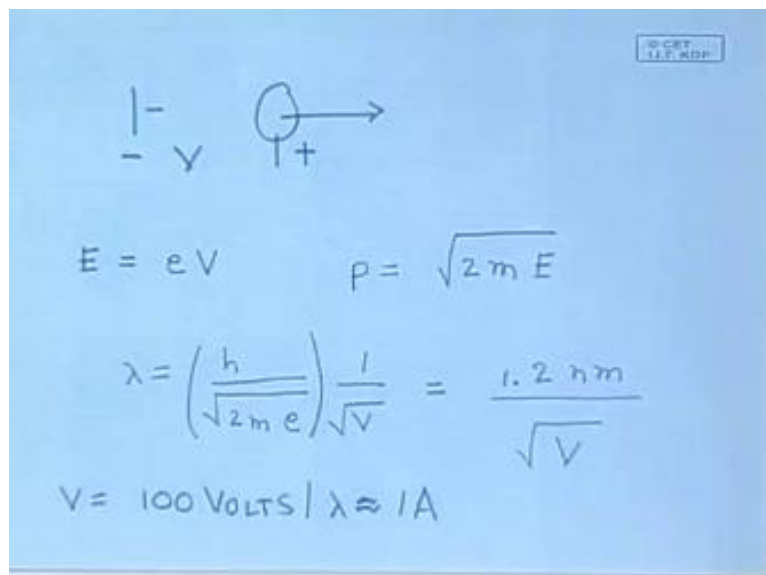 © CET
I.I.T. KGP
- V +
E = eV p = √2mE
λ = (h/√2me) 1/√V = 1.2 nm/√V
V = 100 VOLTS / λ ≈ 1A